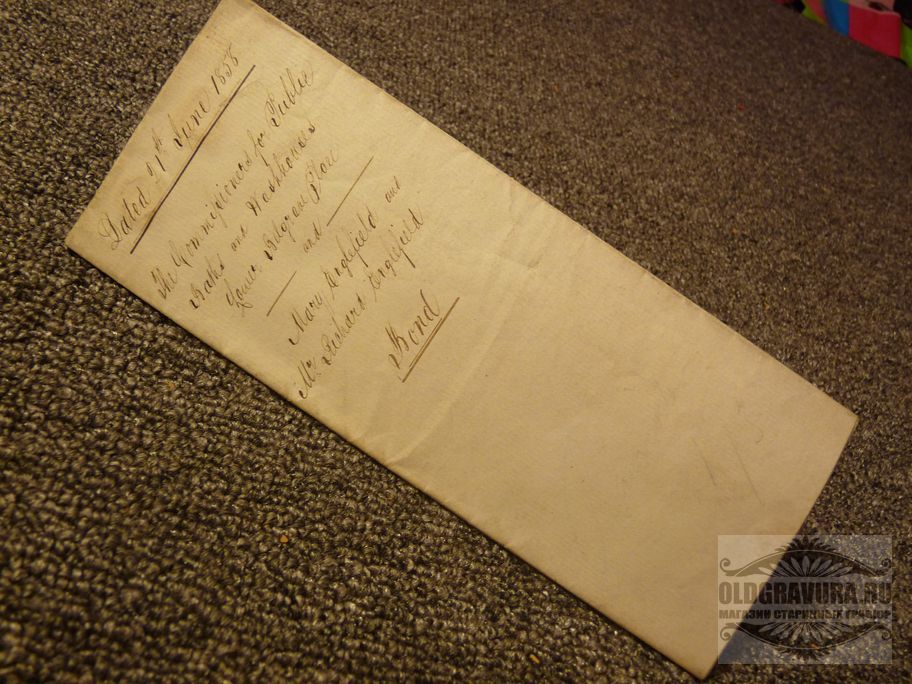 Dated 21st June 1858
The Commissioners for Public
Baths and Washhouses
Lower Belgrave Place
and
Mary Englefield and
Mr Richard Englefield
Bond
OLDGRAVURA.RU
МАГАЗИН СТАРИННЫХ ГРАВЮР